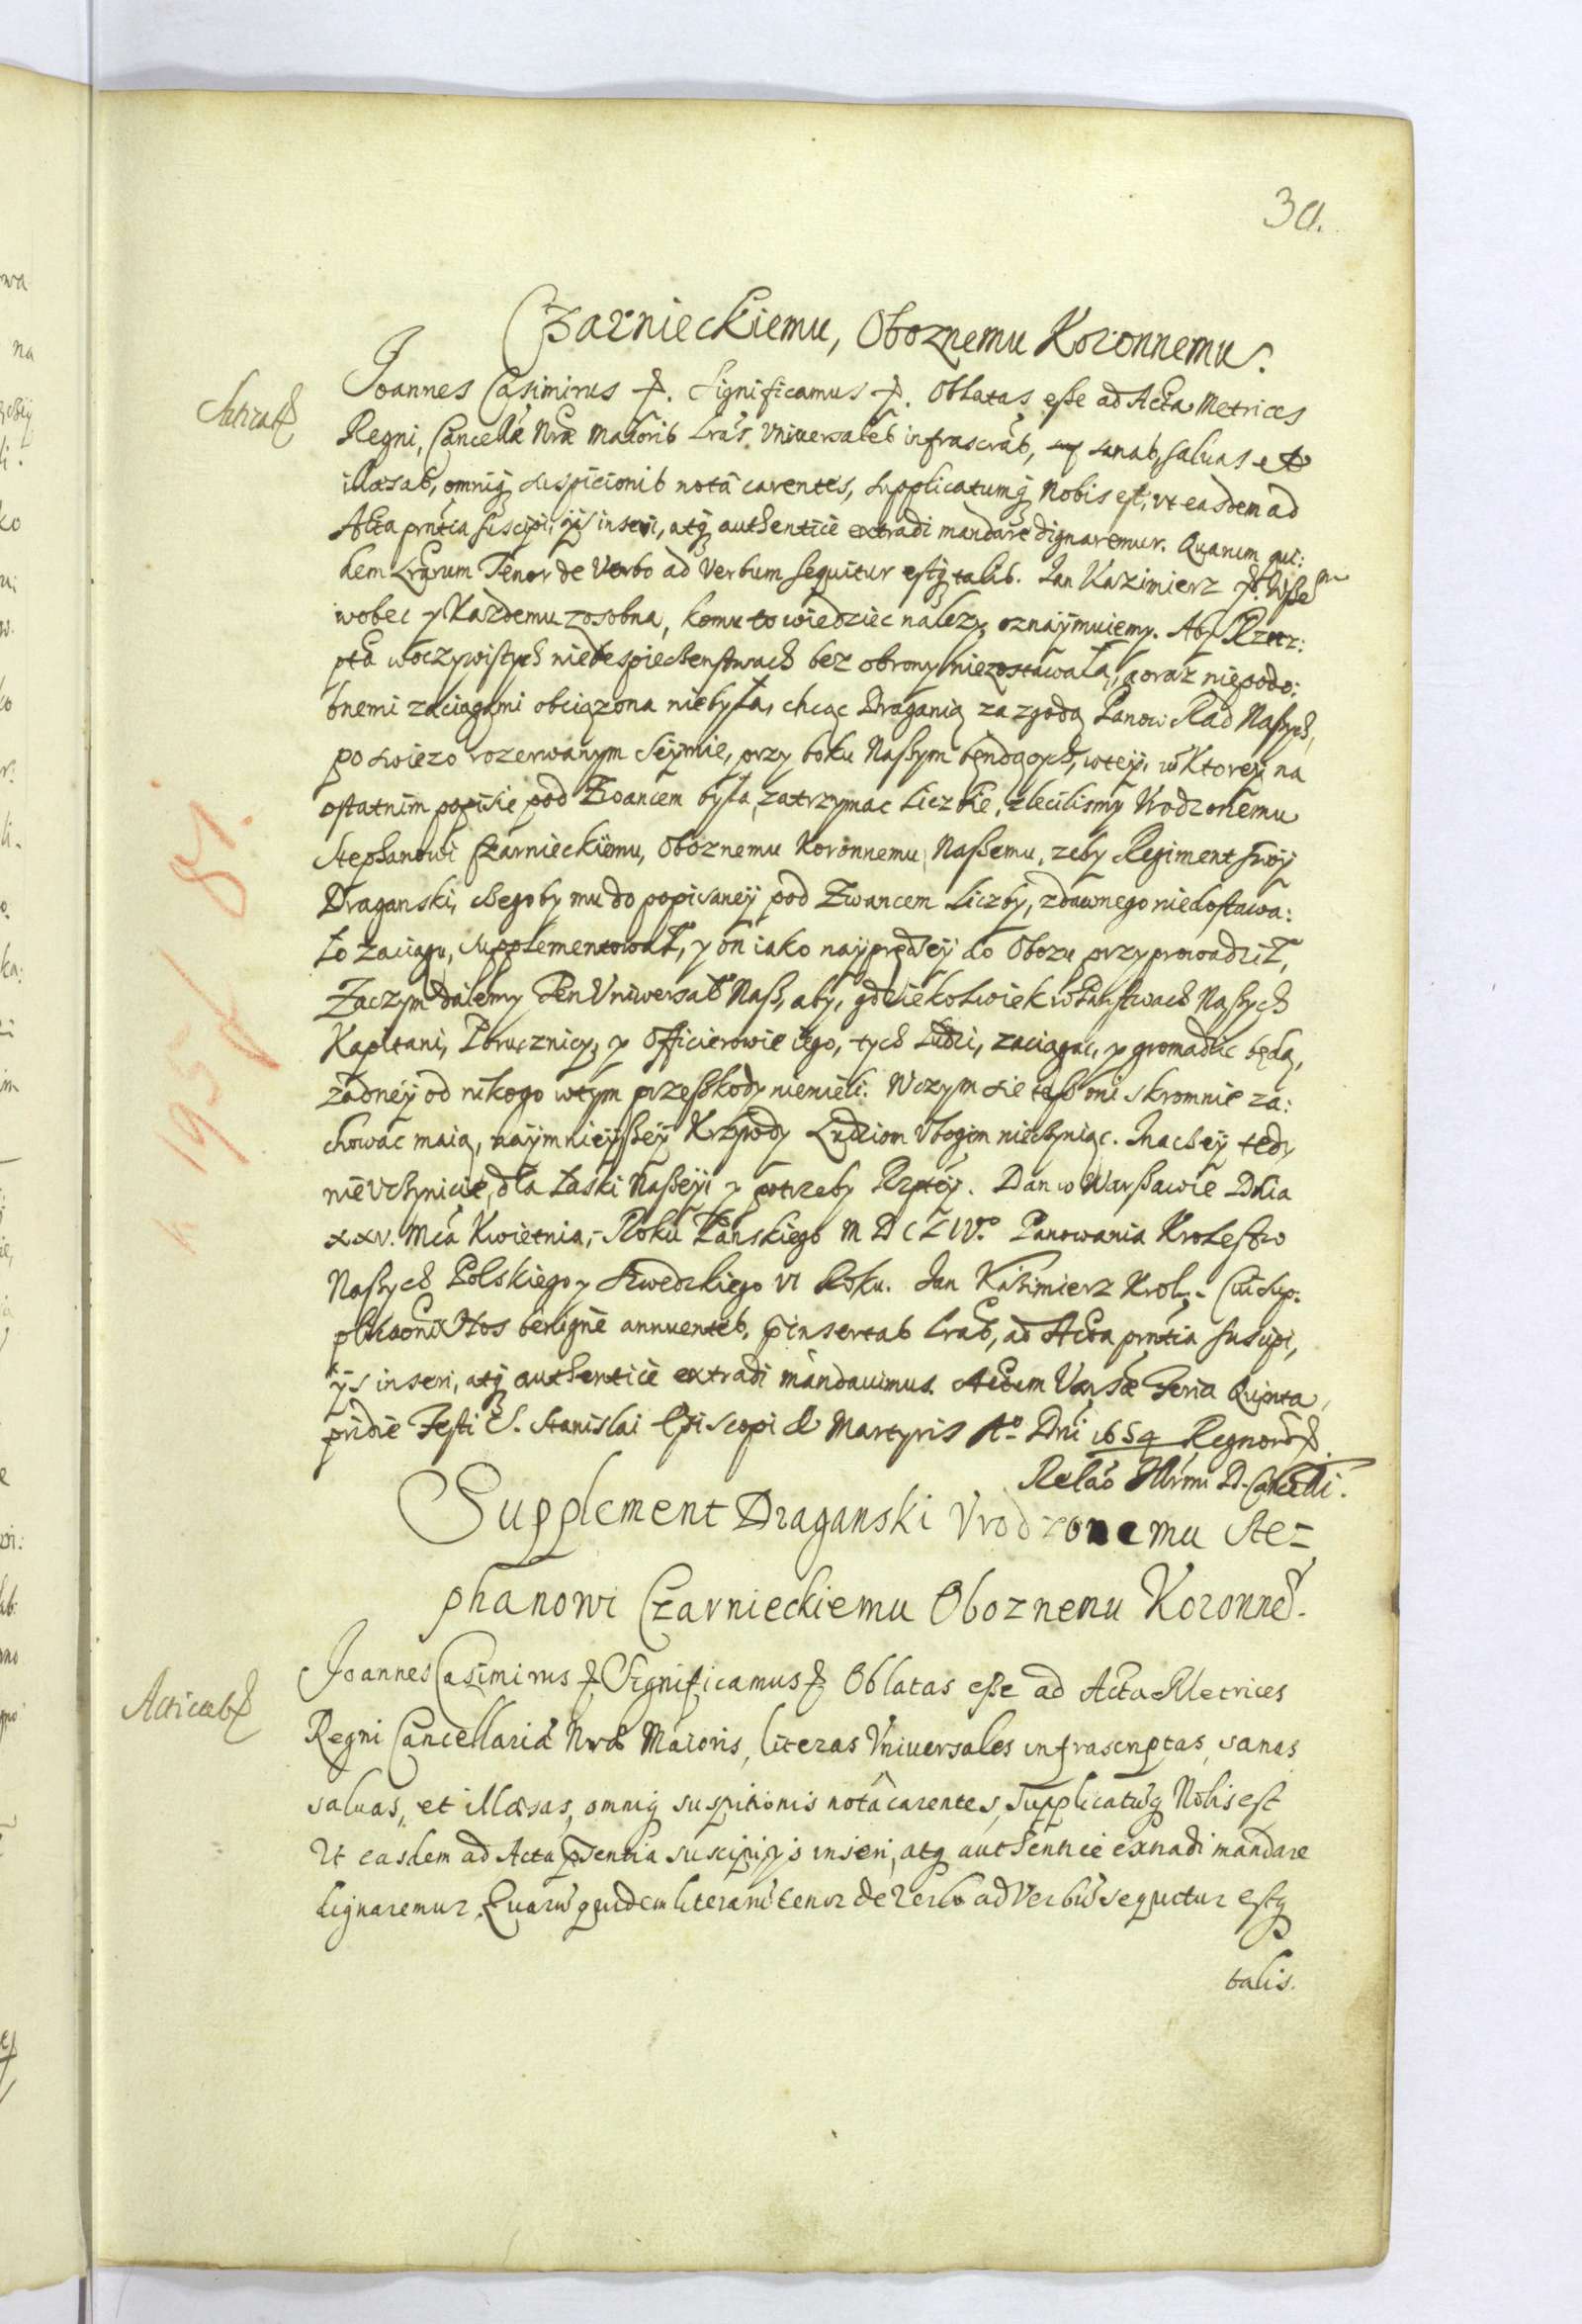 30.
Czarnieckiemu, Oboznemu Koronnemu.
Joannes Casimirus &. Significamus &. Oblatas esse ad Acta Metrices
Regni, Cancellæ Nræ Maioris Lrās Vniuersales infrascrās, sanas, saluas et
illæsas, omniq suspicionis notâ carentes, supplicatumq Nobis est, vt easdem ad
Acta prntia suscipi, ijs inseri, atq authentice extradi mandare dignaremur. Quarum qui:
dem Lrārum Tenor de Verbo ad Verbum sequitur estq talis. Jan Kazimierz &. Wszem
wobec y Kazdemu zosobna, komu to wiedziec nalezy, oznaymuiemy. Aby Rzecz:
pta woczywistych niebespieczenstwach bez obrony niezostawała, a oraz niepodo:
bnemi zaciągami obciązona niebyła, chcąc Draganią za zgodą Panow Rad Naszych,
po swiezo rozerwanym Seymie, przy boku Naszym będących, wtey, w Ktorey na
ostatnim popisie pod Zwancem była, zatrzymac liczbie, zlecilismy Vrodzonemu
Stephanowi Czarnieckiemu, Oboznemu Koronnemu Naszemu, zeby Regiment swoy
Draganski, czegoby mu do popisaney pod Zwancem Liczby, zdawnego niedostawa:
ło zaciągu, supplementował, y on iako nayprędzey do Obozu przyprowadził,
Zaczym dalismy Ten Vniwersał Nasz, aby, gdziekolwiek w Panstwach Naszych
Kapitani, Porucznicy, y Officierowie iego, tych Ludzi, zaciągac, y gromadzic będą,
zadney od nikogo wtym przeszkody niemieli. Wczym sie tesz oni skromnie za:
chowac maią, naymnieyszey Krzywdy Ludziom Vbogim nieczyniąc. Inaczey tedy
nie Vczynicie, dla Łaski Naszey y potrzeby Rzptey. Dan w Warszawie Dnia
XXV. Mca Kwietnia, Roku Panskiego M D C LIV.º Panowania Krolestw
Naszych Polskiego y Szwedzkiego VI Roku. Jan Kazimierz Krol. Cui sup:
plicaoni Nos benigne annuentes, pinsertas Lrās, ad Acta prntia suscipi,
ijs inseri, atq authentice extradi mandauimus. Actum Varsæ Feria Quinta,
pridie Festi S. Stanislai Episcopi & Martyris Aº Dni 1654 Regnorū &.
Relaō Illrmi D. Cancelli.
Supplement Draganski Vrodzonemu Ste=
phanowi Czarnieckiemu Oboznemu Koronne.
Acticat &
Joannes Casimirus & Significamus & Oblatas esse ad Acta Metrices
Regni Cancellariæ Nræ Maioris, literas Vniuersales infrascriptas, sanas
saluas, et illæsas, omniq suspitionis notâ carentes, Supplicatūq Nobis est
Ut easdem ad Acta psentia suscipi, ijs inseri, atq authentice extradi mandare
dignaremur. Quarū quidem literarū tenor de Verbo ad Verbū sequitur estq
talis.